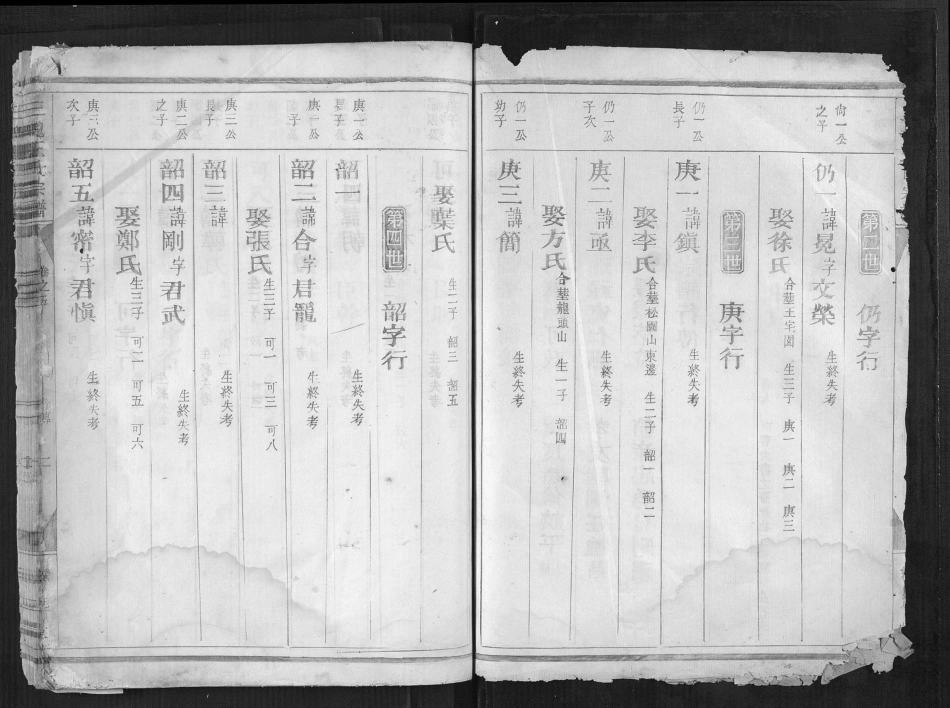 第二世 仍字行
尙一公之子
仍一 諱冕字文榮 生終失考
娶徐氏 合塟王宅園 生三子 庚一 庚二 庚三
第三世 庚字行
仍一公長子
庚一 諱鎭 生終失考
娶李氏 合塟松園山東邊 生二子 韶一 韶二
仍一公次子
庚二 諱亟 生終失考
娶方氏 合塟龍頭山 生一子 韶四
仍一公幼子
庚三 諱簡 生終失考
娶葉氏 生二子 韶三 韶五
第四世 韶字行
庚一公長子
韶一 諱 生終失考
庚一公次子
韶二 諱合字君寵 生終失考
娶張氏 生三子 可一 可三 可八
庚三公長子
韶三 諱 生終失考
庚二公之子
韶四 諱剛字君武 生終失考
娶鄭氏 生三子 可二 可五 可六
庚三公次子
韶五 諱密字君愼 生終失考